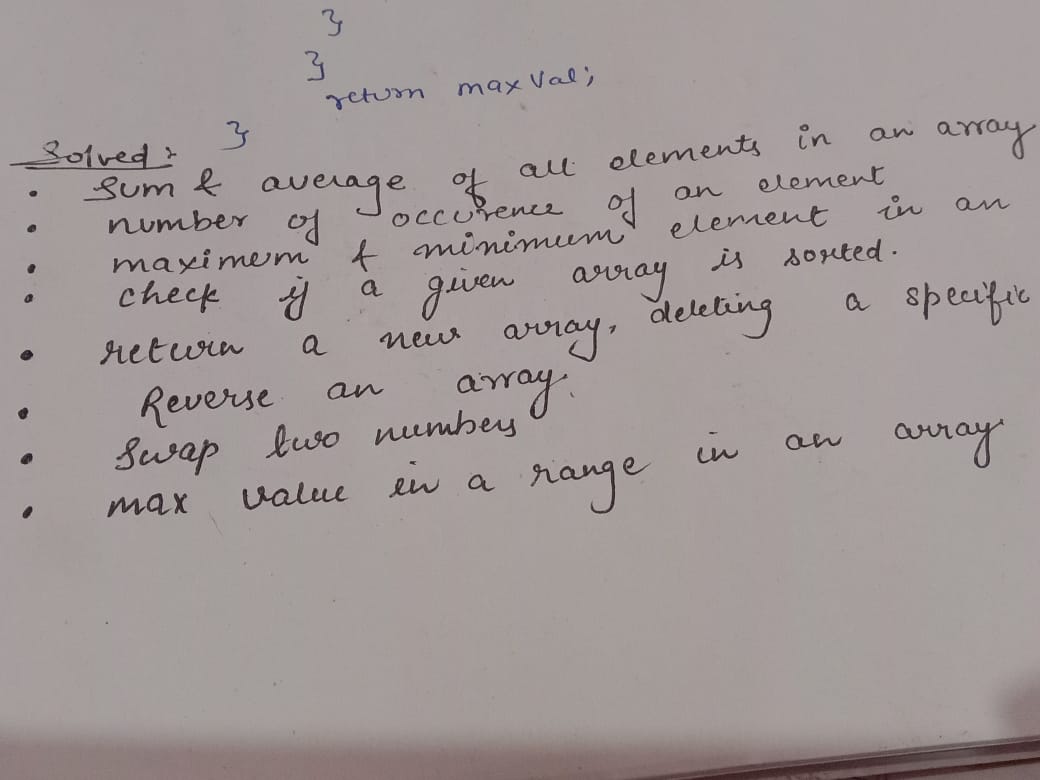 }
}
return maxVal;
}
Solved :
• Sum & average of all elements in an array
• number of occurence of an element
• maximem & minimeum element in an
• check if a given array is sorted.
• return a new array, deleting a specific
• Reverse an array.
• Swap two numbers
• max value in a range in an array